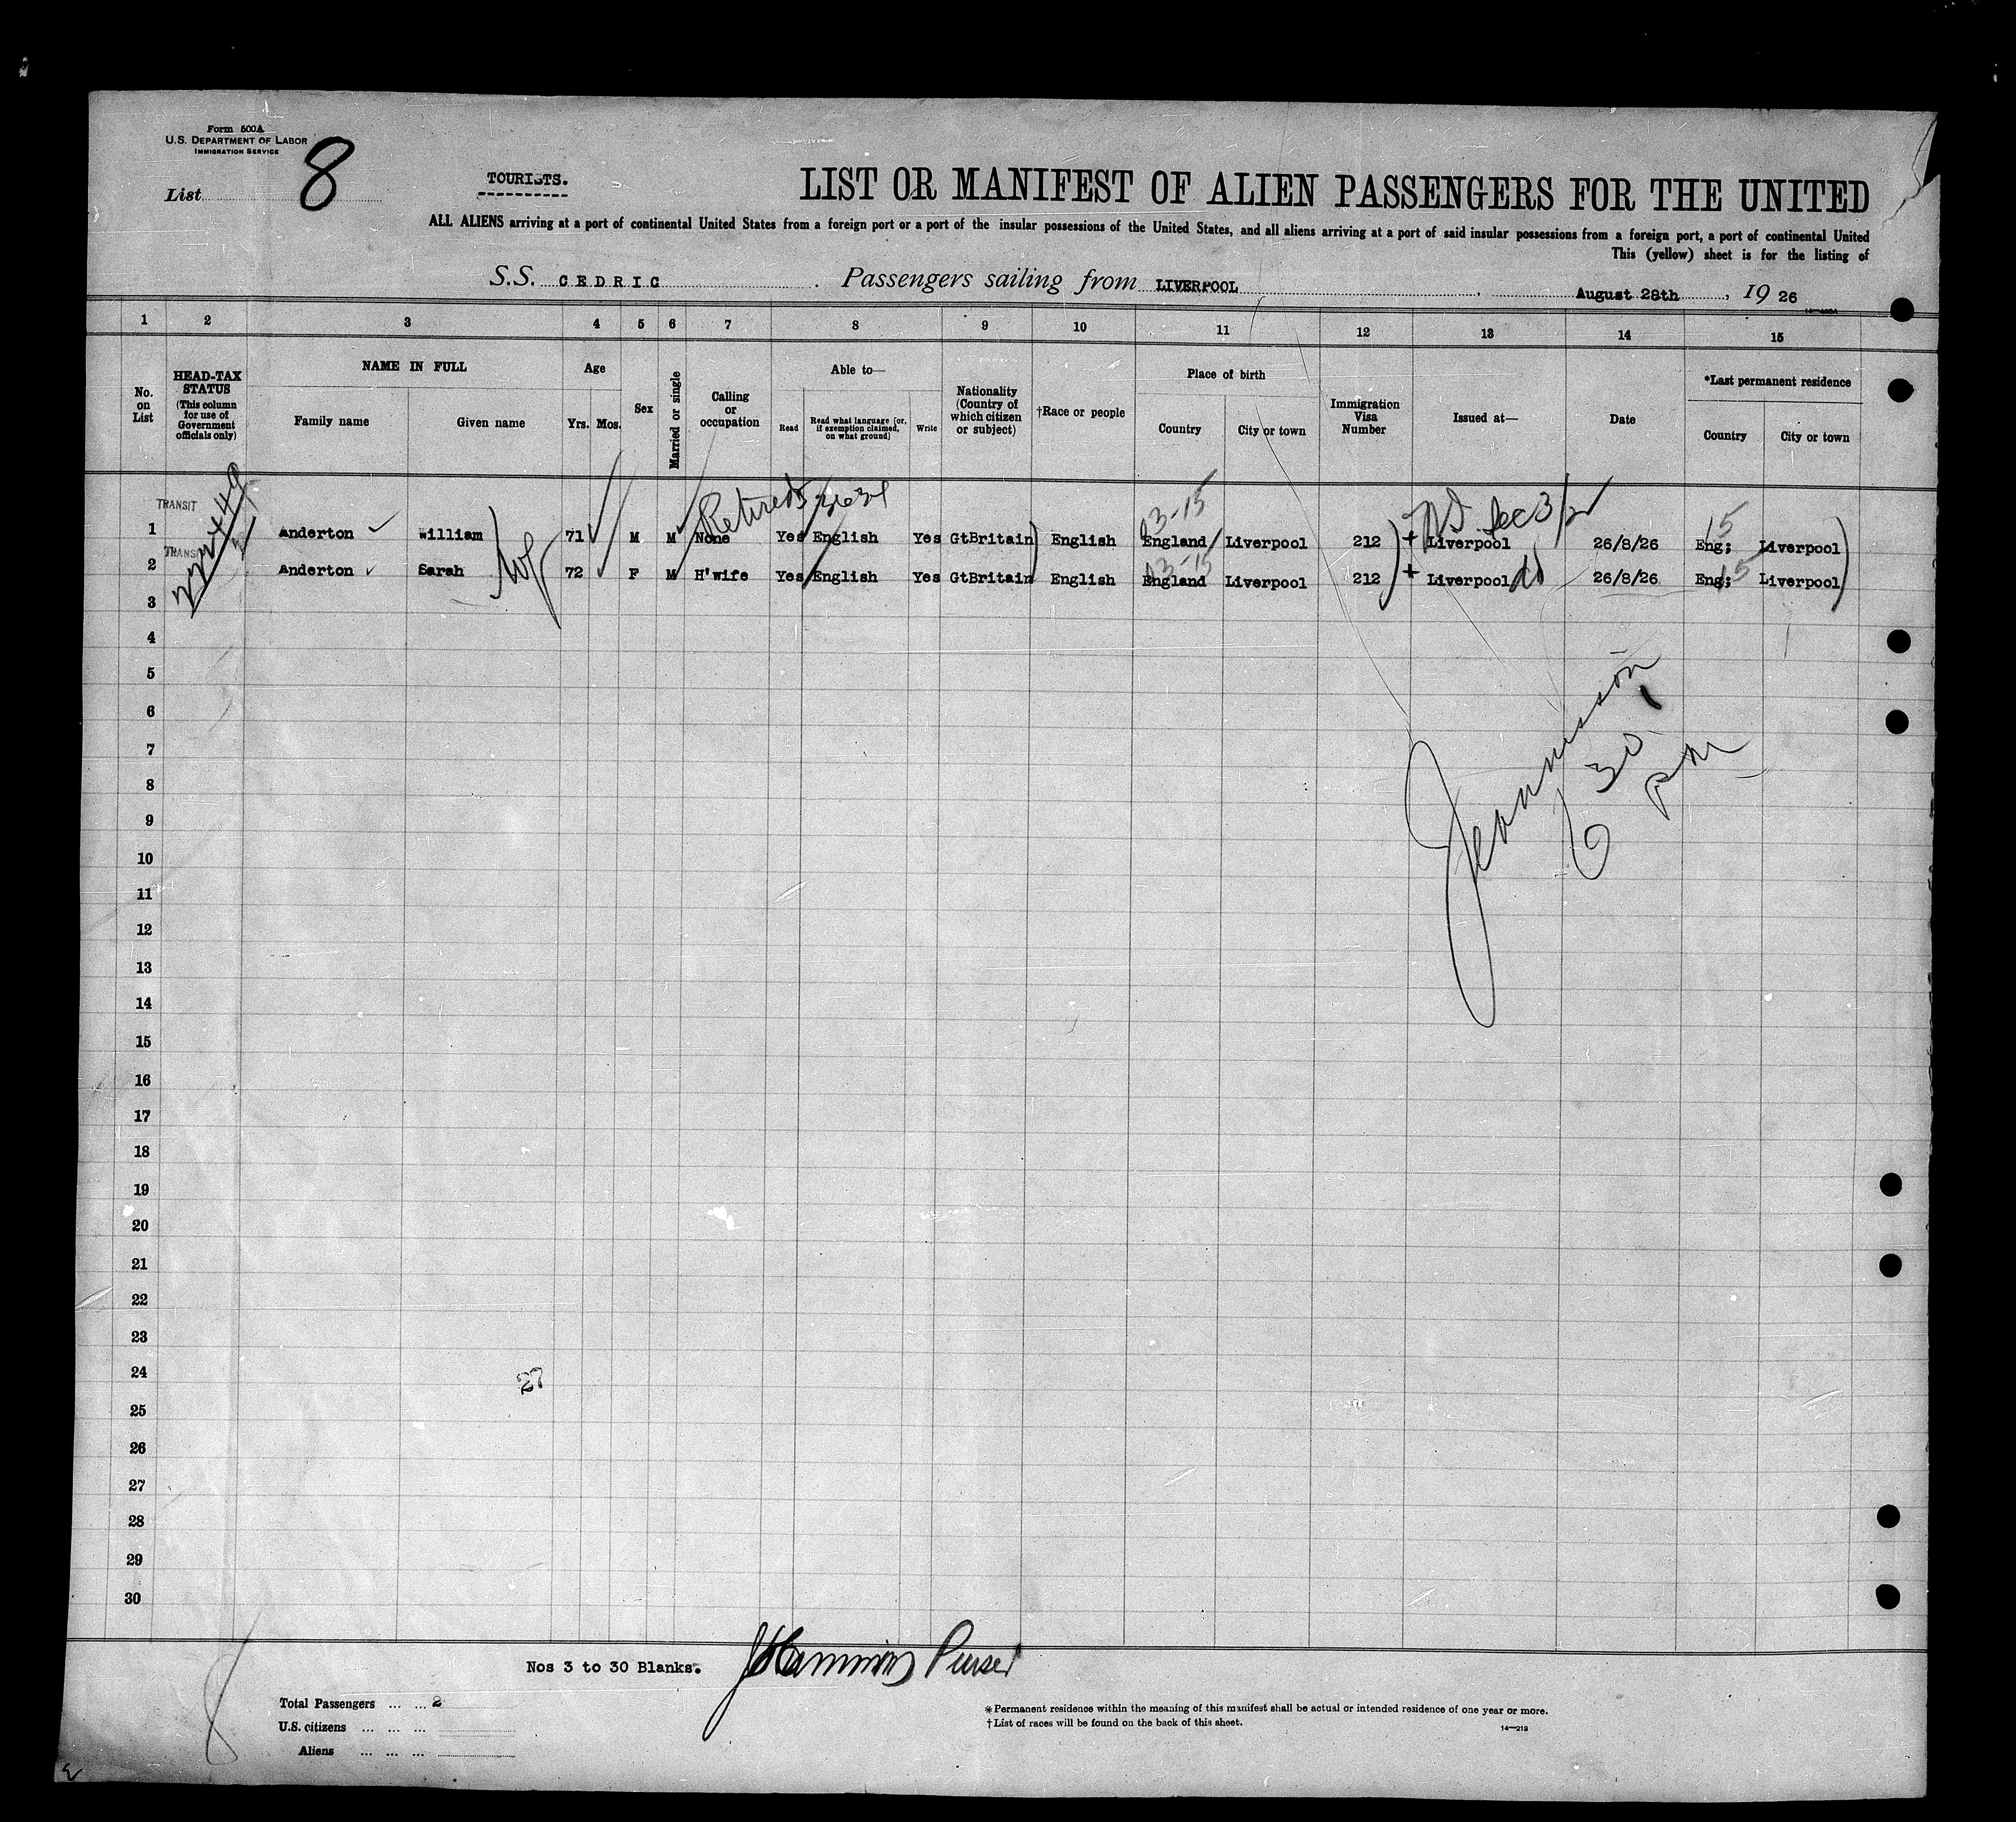 Form 500A
U.S. DEPARTMENT OF LABOR
IMMIGRATION SERVICE
List 8
TOURISTS.
LIST OR MANIFEST OF ALIEN PASSENGERS FOR THE UNITED
ALL ALIENS arriving at a port of continental United States from a foreign port or a port of the insular possessions of the United States, and all aliens arriving at a port of said insular possessions from a foreign port, a port of continental United
This (yellow) sheet is for the listing of
S.S. CEDRIC Passengers sailing from LIVERPOOL, August 28th, 1926
1 2 3 4 5 6 7 8 9 10 11 12 13 14 15
No. on List
HEAD-TAX STATUS (This column for use of Government officials only)
NAME IN FULL
Family name Given name
Age
Yrs. Mos.
Sex
Married or single
Calling or occupation
Able to—
Read
Read what language [or, if exemption claimed, on what ground]
Write
Nationality (Country of which citizen or subject)
†Race or people
Place of birth
Country City or town
Immigration Visa Number
Issued at—
Date
*Last permanent residence
Country City or town
Retired
03-15
Sec 3/2
15
TRANSIT
1 Anderton William 71 M M None Yes English Yes GtBritain English England Liverpool 212 Liverpool 26/8/26 Eng; Liverpool
TRANSIT
03-15
15
2 Anderton Sarah 72 F M H'wife Yes English Yes GtBritain English England Liverpool 212 Liverpool do 26/8/26 Eng; Liverpool
3
4
5
6
7
8
9
10
11
12
13
14
15
16
17
18
19
20
21
22
23
24
25
26
27
28
29
30
6 30 PM
27
Nos 3 to 30 Blanks.
Purser
Total Passengers ... ... 2
U.S. citizens ... ... ...
Aliens ... ... ...
*Permanent residence within the meaning of this manifest shall be actual or intended residence of one year or more.
†List of races will be found on the back of this sheet.
14—213